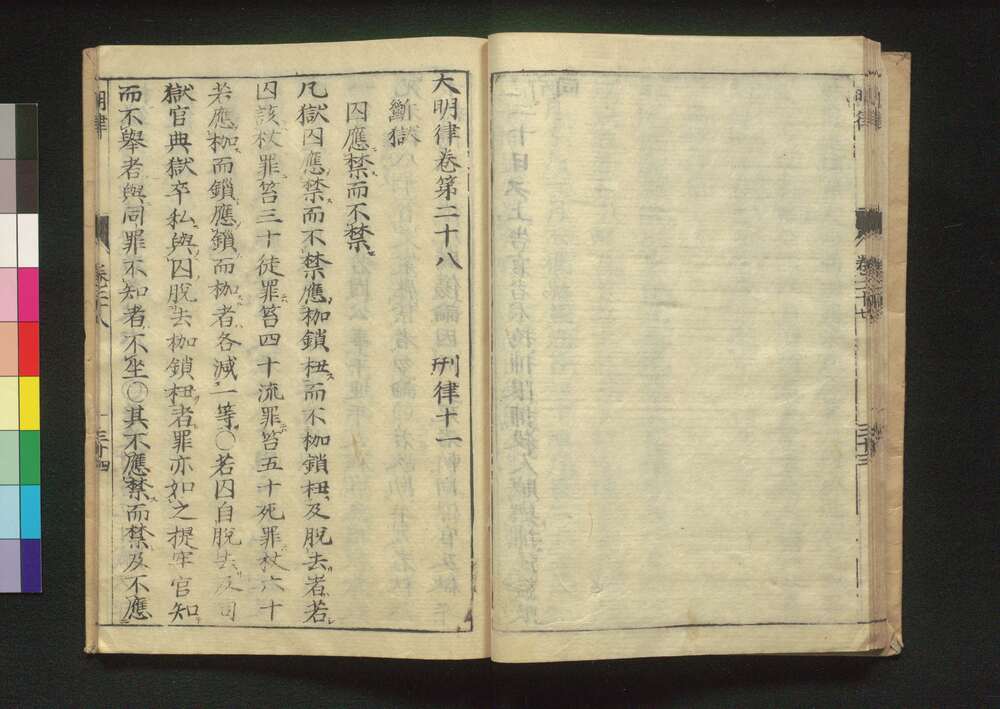 大明律卷第二十八 刑律十一
斷獄
囚應禁而不禁
凡獄囚應禁而不禁應枷鎖杻而不枷鎖杻及脫去者若
囚該杖罪笞三十徒罪笞四十流罪笞五十死罪杖六十
若應枷而鎖應鎖而枷者各減一等○若囚自脫去及司
獄官典獄卒私與囚脫去枷鎖杻者罪亦如之提牢官知
而不舉者與同罪不知者不坐○其不應禁而禁及不應
明律 卷二十八 三十四